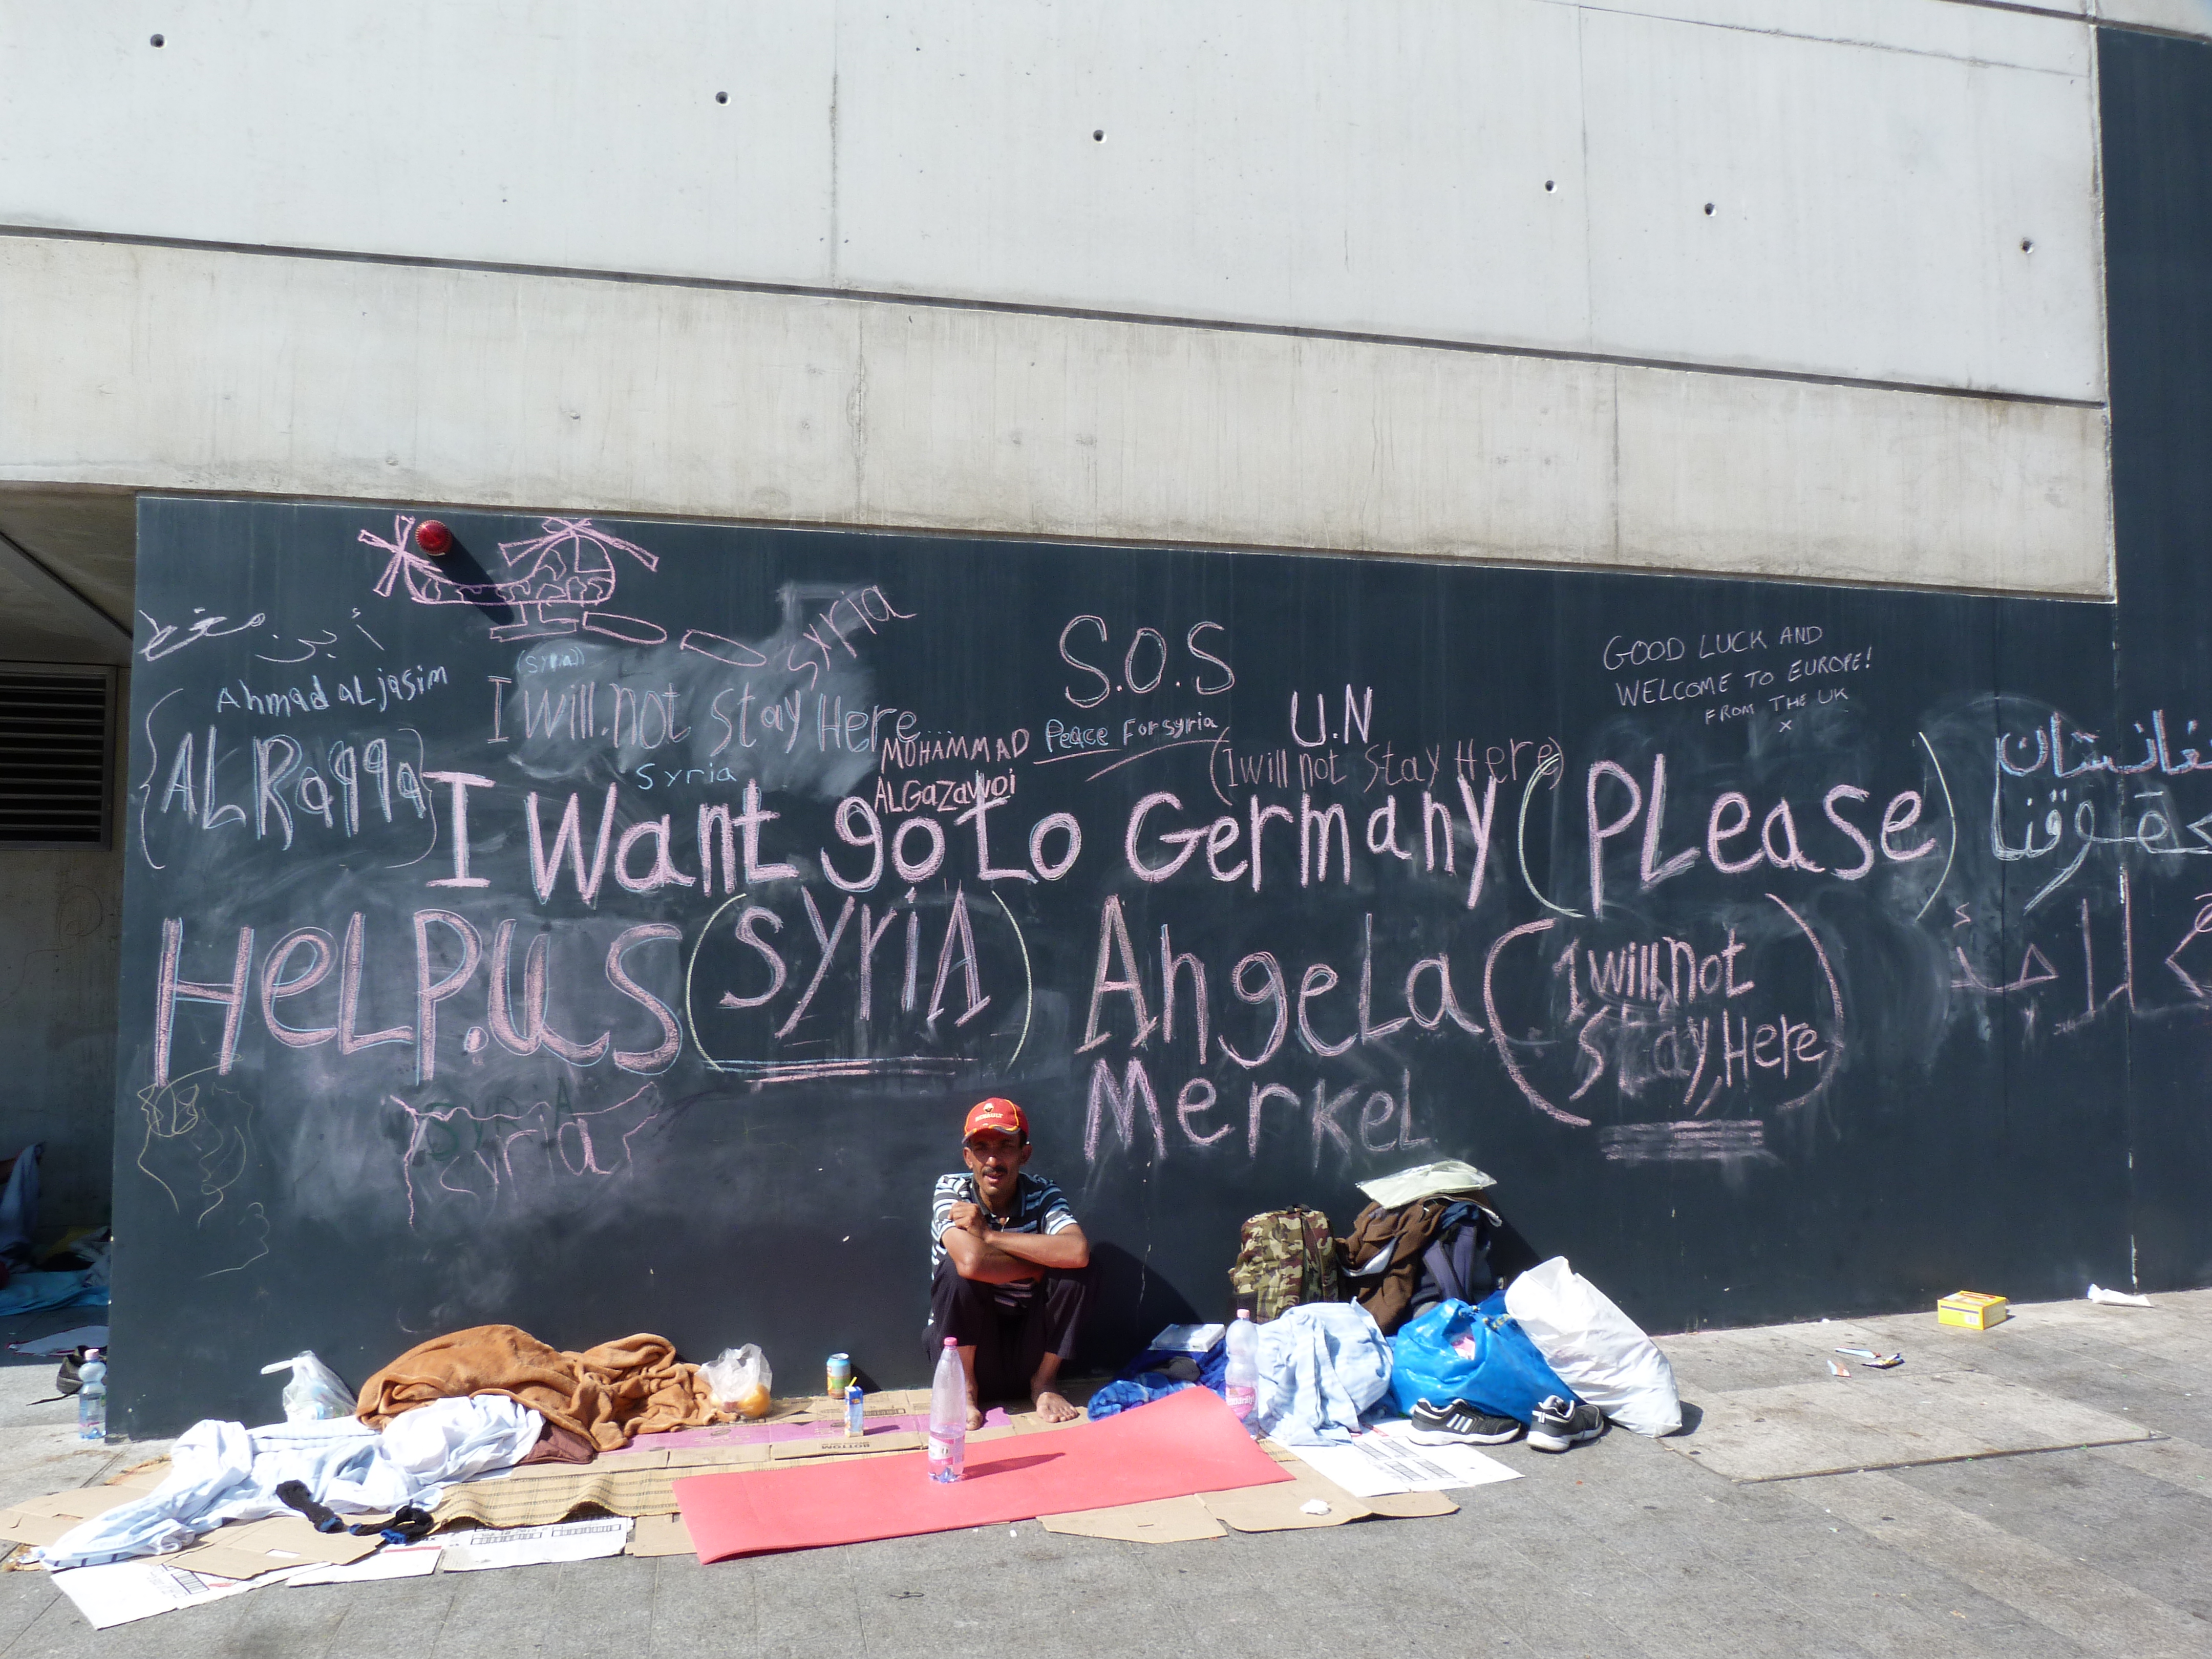 Syria
S.O.S
GOOD LUCK AND
WELCOME TO EUROPE!
FROM THE UK
x
(Syria)
Ahmad aLjasim
I will not Stay Here
MOHAMMAD
ALGazawoi
Peace For syria
U.N
(I will not Stay Here)
{AL Raqqa}
Syria
I Want go to Germany (PLease)
HeLP.us (SyriA) AngeLa
MerkeL
(I will not
Stay, Here)
SYRIA
Syria
حقوقنا
BOTTOM